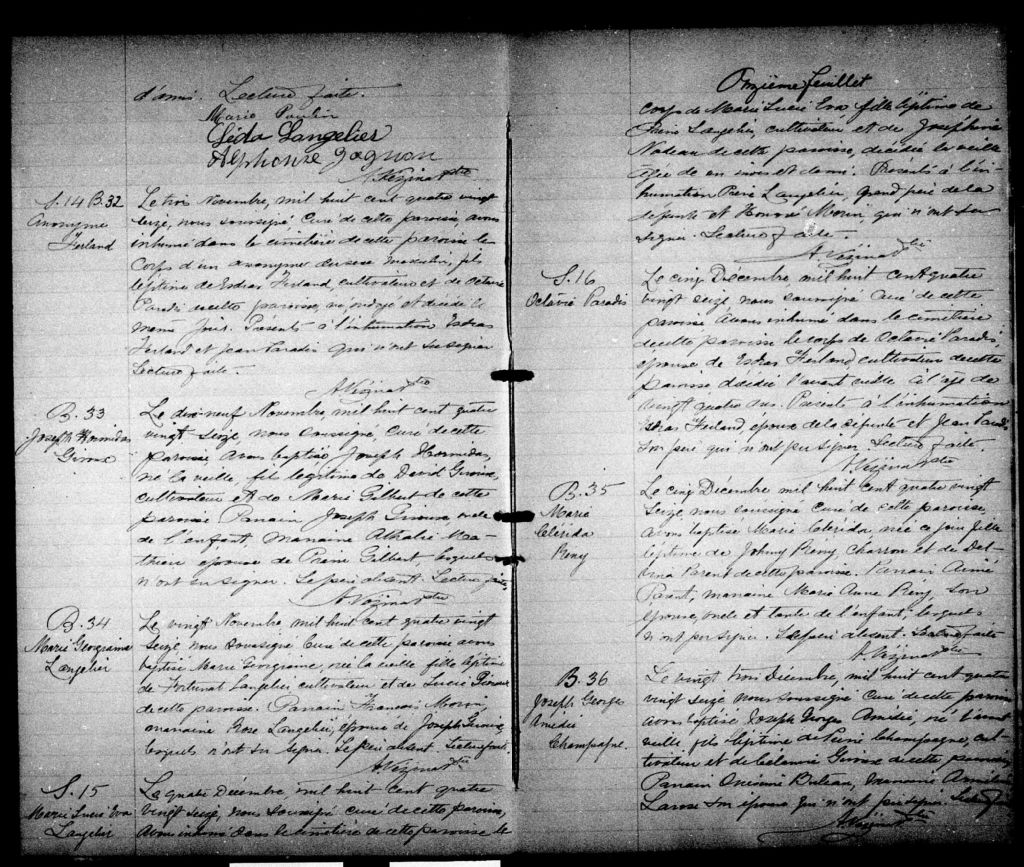 d'ami. Lecture faite.
Marie Poulin
Léda Langelier
Alphonse Gagnon
A. Vézina Ptre
S. 14 B. 32
Anonyme
Ferland
Le trois Novembre, mil huit cent quatre vingt
seize, nous soussigné, Curé de cette paroisse, avons
inhumé dans le cimetière de cette paroisse le
Corps d'un anonyme du sexe masculin, fils
légitime de Esdras Ferland, cultivateur et de Octavie
Paradis de cette paroisse, né, ondoyé et décédé le
même jour. Présents à l'inhumation Esdras
Ferland et Jean Paradis qui n'ont su signer
Lecture faite.
A. Vézina Ptre
B. 33
Joseph Hormidas
Giroux
Le dix-neuf Novembre mil huit cent quatre
vingt seize, nous soussigné, Curé de cette
paroisse, avons baptisé Joseph Hormidas,
né la veille, fils légitime de David Giroux,
cultivateur et de Marie Gilbert de cette
paroisse Parrain Joseph Giroux oncle
de l'enfant, marraine Athalie Ma-
thieu épouse de Rémi Gilbert, lesquels
n'ont su signer. Le père absent. Lecture faite
A. Vézina Ptre
B. 34
Marie Georgianna
Langelier
Le vingt Novembre, mil huit cent quatre vingt
seize nous soussigné Curé de cette paroisse avons
baptisé Marie Georgianna, née la veille fille légitime
de Fortunat Langelier cultivateur et de Lucie Giroux
de cette paroisse. Parrain François Morin,
marraine Rose Langelier, épouse de Joseph Giroux,
lesquels n'ont su signer. Le père absent. Lecture faite.
A. Vézina Ptre
S. 15
Marie Lucie Eva
Langelier
Le quatre Décembre, mil huit cent quatre
vingt seize, nous soussigné curé de cette paroisse,
avons inhumé dans le cimetière de cette paroisse le
Onzième feuillet
corps de Marie Lucie Eva fille légitime de
Langelier, cultivateur et de Joséphine
Nadeau de cette paroisse, décédée la veille
âgée de un mois et demi. Présents à l'in-
humation Langelier, Grand père de la
défunte et Honoré Morin, qui n'ont su
signer. Lecture faite.
A. Vézina Ptre
S. 16
Octavie Paradis
Le cinq Décembre, mil huit cent quatre
vingt seize nous soussigné Curé de cette
paroisse avons inhumé dans le cimetière
de cette paroisse le corps de Octavie Paradis,
épouse de Esdras Ferland cultivateur de cette
paroisse décédée l'avant veille à l'âge de
vingt quatre ans. Présents à l'inhumation
Esdras Ferland, époux de la défunte et Jean Paradis
son père qui n'ont pu signer. Lecture faite.
A. Vézina Ptre
B. 35
Marie
Clérida
Remy
Le cinq Décembre mil huit cent quatre vingt
seize nous soussigné Curé de cette paroisse,
avons baptisé Marie Clérida née ce jour fille
légitime de Johny Remy Charron et de Del-
vina Parent de cette paroisse. Parrain Aimé
Parent, marraine Marie Anne Remy son
épouse, oncle et tante de l'enfant, lesquels
n'ont pu signer. Le père absent. Lecture faite
A. Vézina Ptre
B. 36
Joseph George
Amédé
Champagne.
Le vingt trois Décembre, mil huit cent quatre
vingt seize nous soussigné Curé de cette paroisse
avons baptisé Joseph George Amédé, né l'avant
veille, fils légitime de Champagne, cul-
tivateur et de Célanire Giroux de cette paroisse
Parrain Onésime Bilodeau, marraine
Larose son épouse qui n'ont pu signer. Lecture faite
A. Vézina Ptre